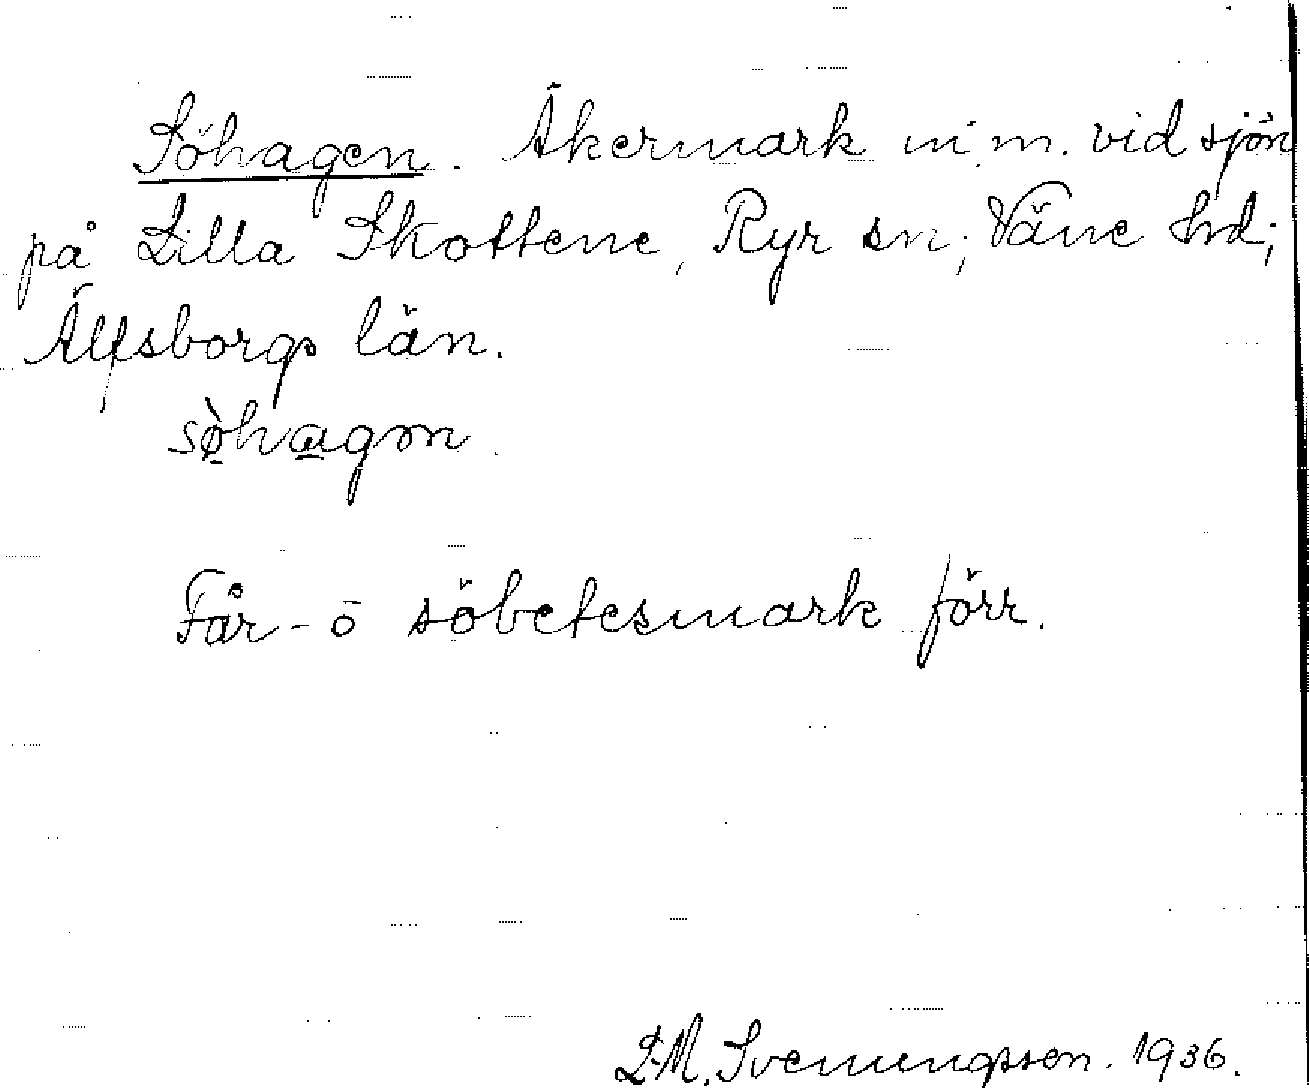 Söhagen. Åkermark m.m. vid sjön
på Lilla Skottene, Ryr sn; Väne hd;
Älfsborgs län.
sø̀hagən.
Får- o söbetesmark förr.
L.M. Svenungsson. 1936.